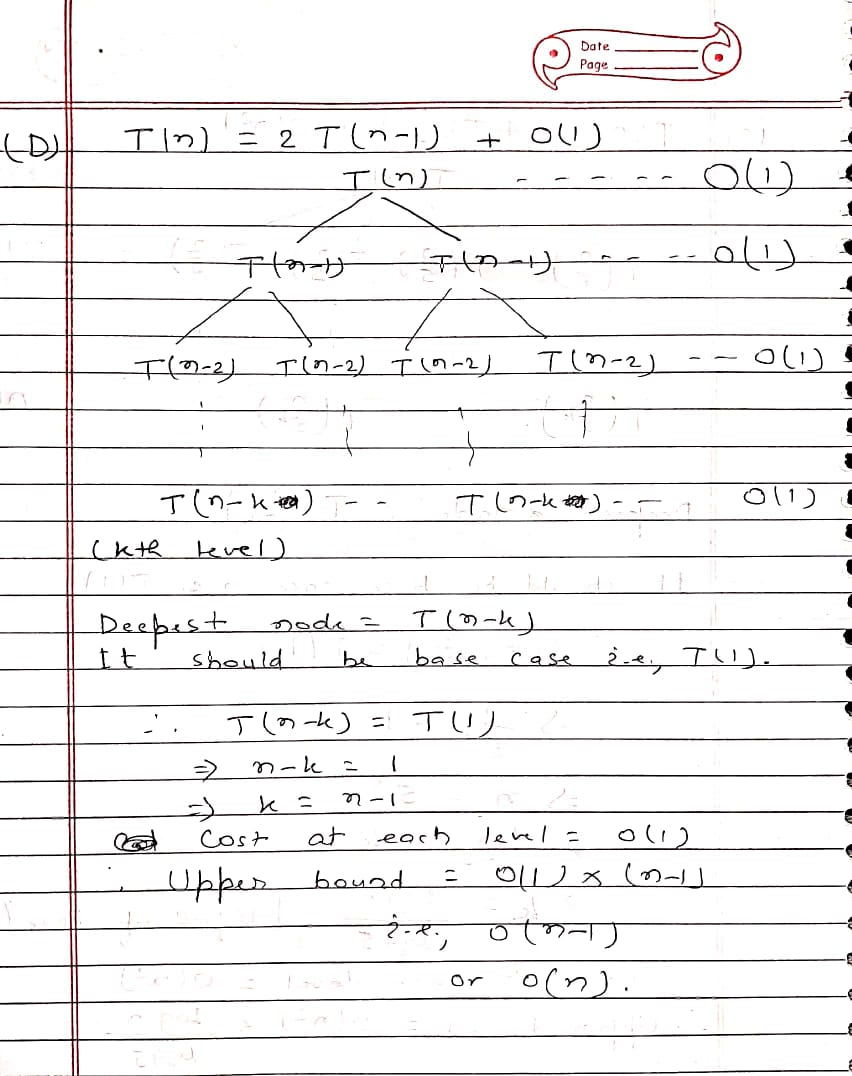 Date
Page
(D) T(n) = 2 T(n-1) + O(1)
T(n) - - - - - - O(1)
T(n-1) T(n-1) - - - - - O(1)
T(n-2) T(n-2) T(n-2) T(n-2) - - O(1)
T(n-k) - - T(n-k) - - O(1)
(kth level)
Deepest node = T(n-k)
It should be base case i.e., T(1).
∴ T(n-k) = T(1)
⇒ n-k = 1
⇒ k = n-1
Cost at each level = O(1)
∴ Upper bound = O(1) x (n-1)
i.e., O(n-1)
or O(n).